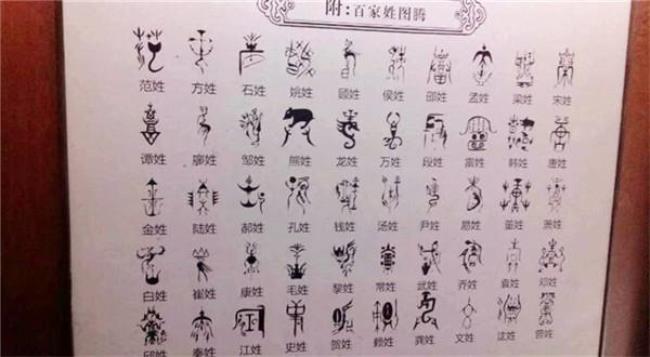 附:百家姓图腾
范姓 方姓 石姓 姚姓 顾姓 侯姓 邵姓 孟姓 梁姓 宋姓
谭姓 廖姓 邹姓 熊姓 龙姓 万姓 段姓 雷姓 韩姓 唐姓
金姓 陆姓 郝姓 孔姓 钱姓 汤姓 尹姓 易姓 董姓 萧姓
白姓 崔姓 康姓 毛姓 黎姓 常姓 武姓 乔姓 袁姓 邓姓
邱姓 秦姓 江姓 史姓 贺姓 赖姓 龚姓 文姓 曾姓